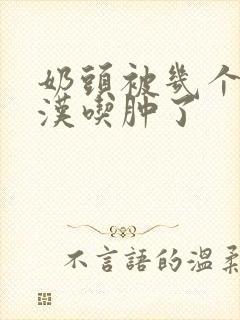 奶頭被幾个
漢喫肿了
不言語的温柔